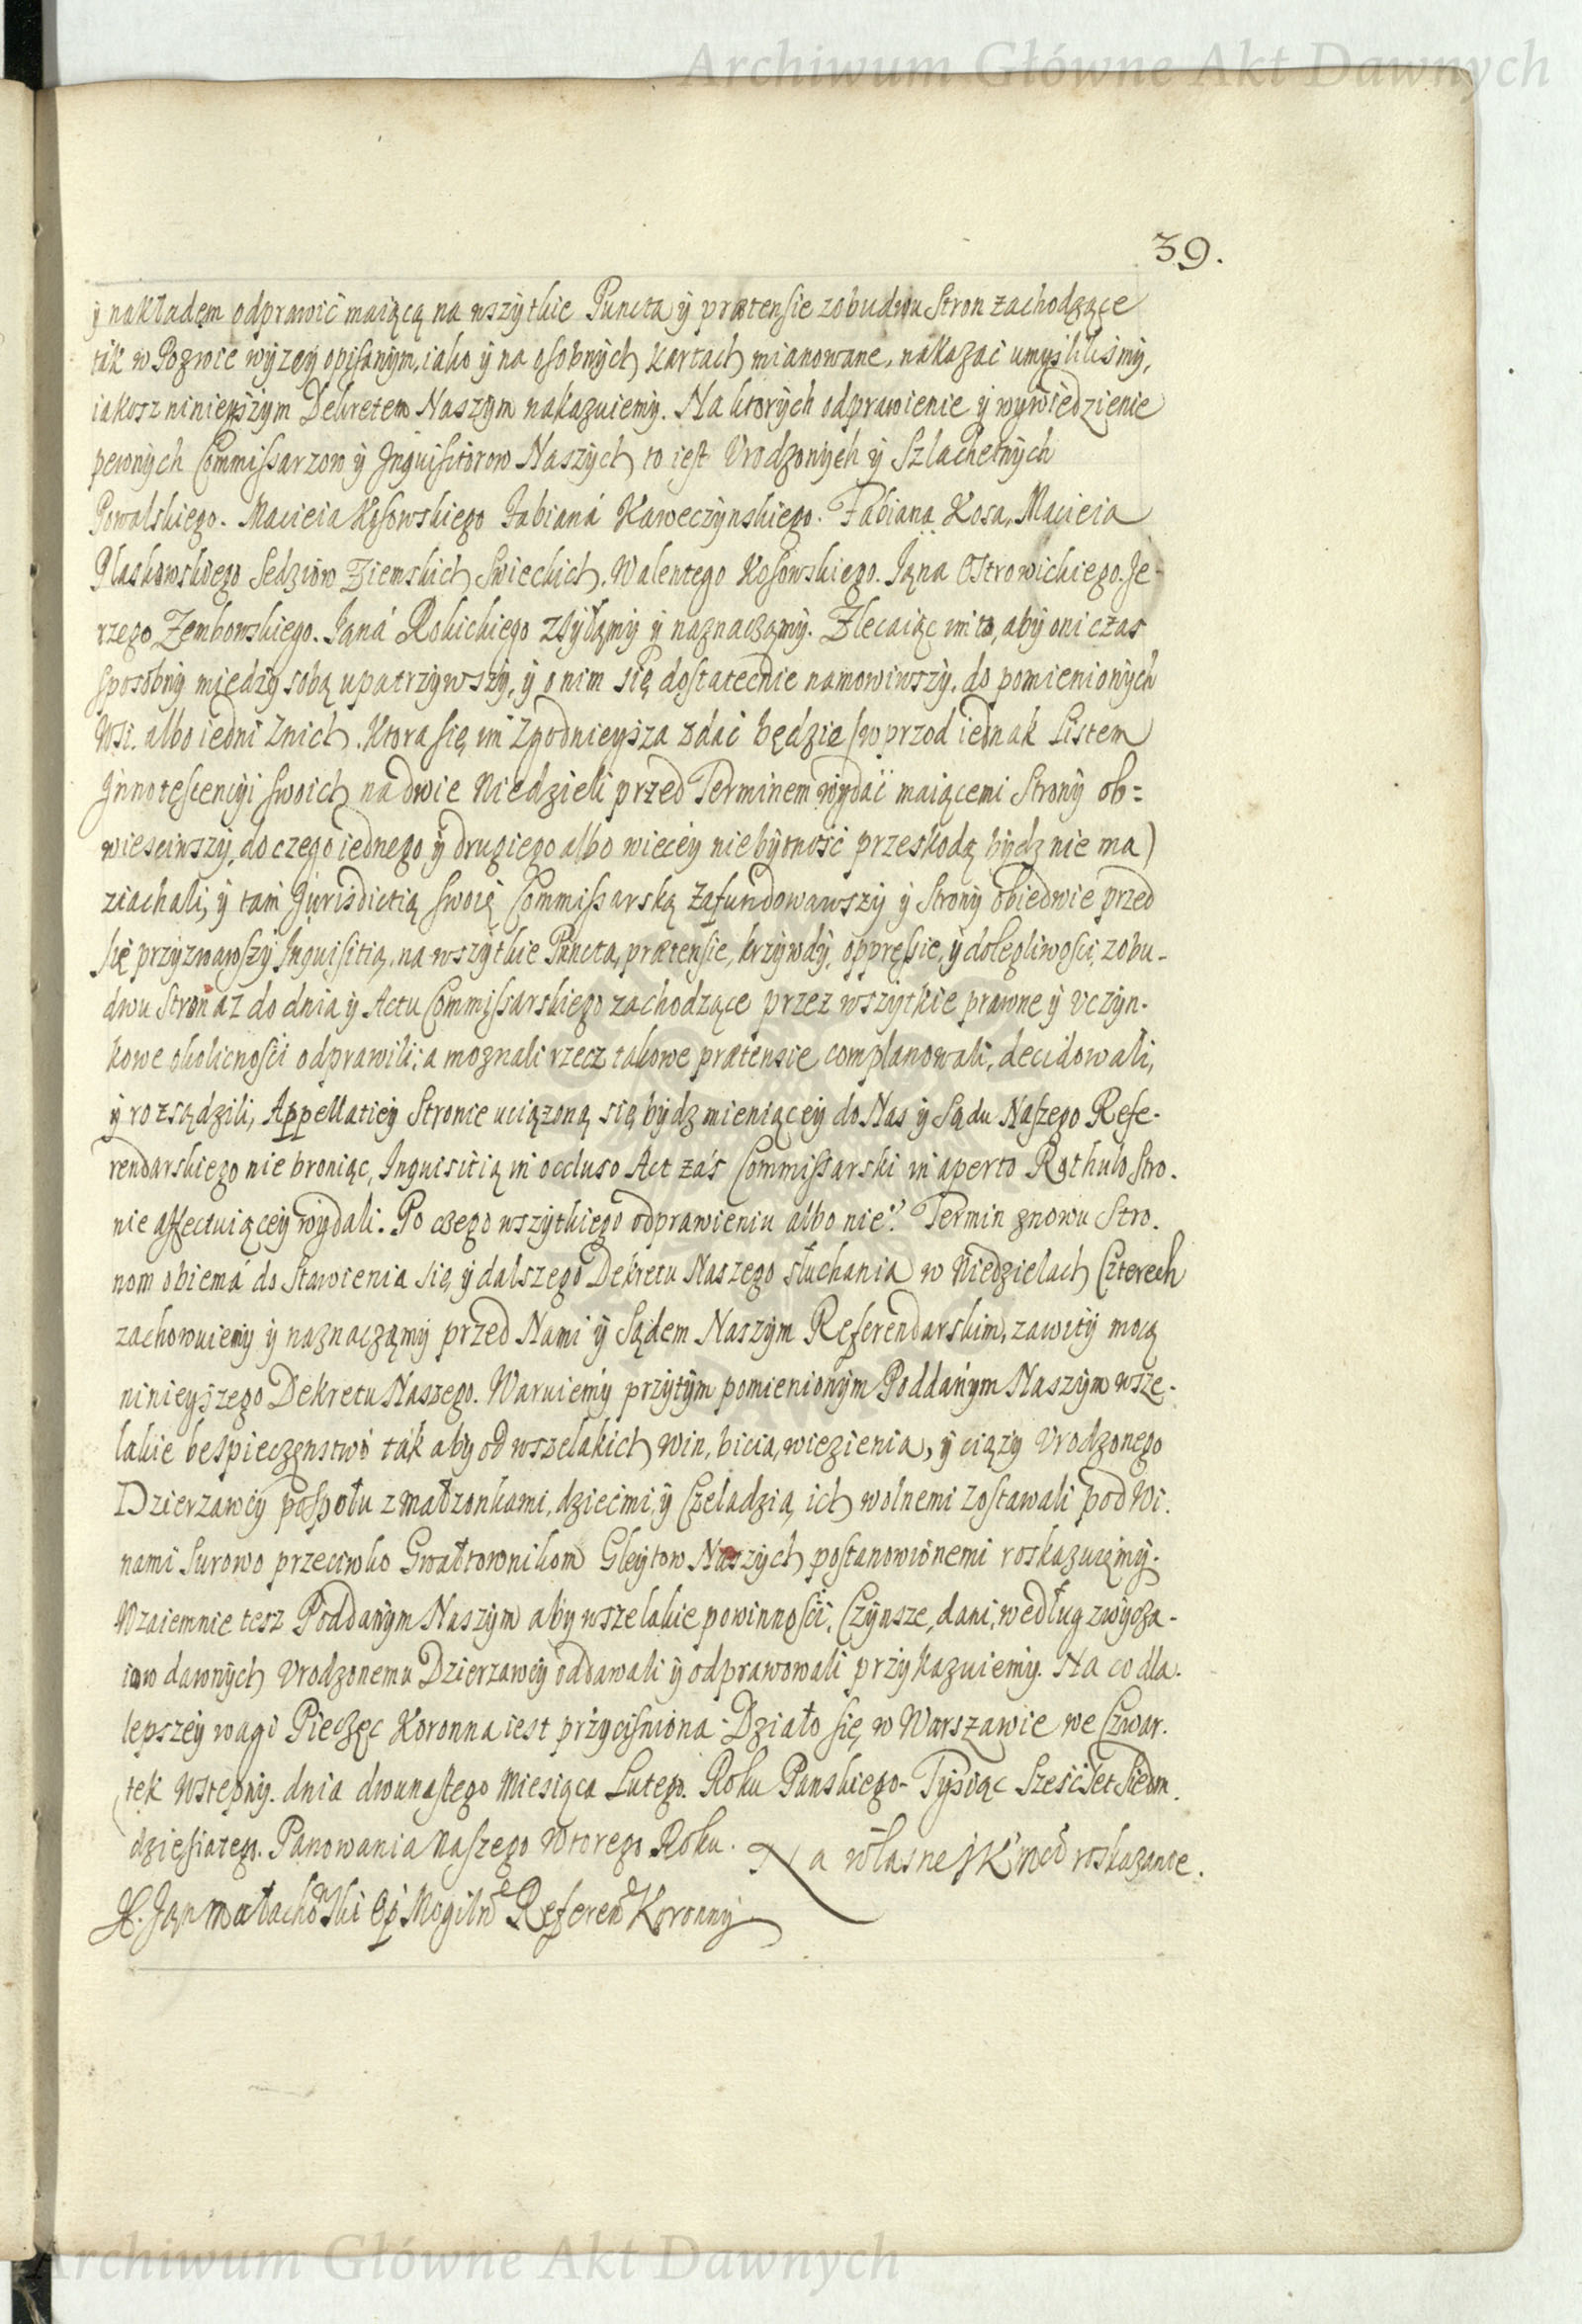 Archiwum Główne Akt Dawnych
39.
ÿ nakładem odprawić maiącą na wszÿtkie Puncta ÿ prætensie zobudwu Stron zachodzące
tak w Pozwie wÿzeÿ opisanÿm, iako ÿ na osobnÿch kartach mianowane, nakazać umÿslilismÿ,
iakosz ninieÿszÿm Dekretem Naszÿm nakazuiemÿ. Na ktorÿch odprawienie ÿ wÿwiedzienie
pewnÿch Commissarzow ÿ Inquisitorow Naszÿch to iest Vrodzonÿch ÿ Szlachetnÿch
Powalskiego. Macieia Kosowskiego Fabianá Kaweczÿnskiego. Fabiana Kosa, Macieia
Płaskowskiego Sedziow Ziemskich Swieckich. Walentego Kosowskiego. Jana Ostrowickiego. Je-
rzego Zembowskiego. Janá Rokickiego zsÿłamÿ ÿ naznaczamÿ. Zlecaiąc im to, abÿ oni czas
sposobnÿ międzÿ sobą upatrzÿwszÿ, ÿ o nim się dostatecnie namowiwszÿ, do pomienionÿch
Wsi. albo iedni znich. Ktora się im zgodnieÿsza zdać będzie (wprzod iednak Listem
Innotescencÿi swoich na dwie Niedzieli przed Terminem wÿdać maiącemi Stronÿ ob=
wiesciwszÿ, do czego iednego ÿ drugiego albo wieceÿ niebÿtność przeskodą bÿdz nie ma)
ziachali, ÿ tam Jurisdictią swoię Commissarską zafundowawszÿ ÿ Stronÿ obiedwie przed
się przÿzwawszÿ Inquisitią, na wszÿtkie Puncta, prætensie, krzÿwdÿ, oppressie, ÿ dolegliwosci, zobu-
dwu Stron az do dnia ÿ Actu Commissarskiego zachodzące przez wszÿtkie prawne ÿ vczÿn-
kowe okolicnosci odprawili; a moznali rzecz takowe prætensie complanowali, decidowali,
ÿ rozsądzili, Appellatieÿ Stronie uciązoną się bÿdz mieniąceÿ do Nas ÿ Sądu Naszego Refe-
rendarskiego nie broniąc, Inquisitią in occluso Act zás Commissarski in aperto Rothulo Stro-
nie affectuiąceÿ wÿdali. Po czego wszÿtkiego odprawieniu albo nie? Termin znowu Stro-
nom obiemá do Stawienia się, ÿ dalszego Dekretu Naszego słuchania w Niedzielach Czterech
zachowuiemÿ ÿ naznaczamÿ przed Nami ÿ Sądem Naszÿm Referendarskim, zawitÿ mocą
ninieÿszego Dekretu Naszego. Waruiemÿ przÿtÿm pomienionÿm Poddanÿm Naszÿm wsze-
lakie bespieczenstwo ták abÿ od wszelakich win, bicia, wiezienia, ÿ ciązÿ Vrodzonego
Dzierzawcÿ pospołu z małzonkami, dziecmi, ÿ Czeladzią ich wolnemi zostawali pod Wi-
nami surowo przeciwko Gwałtownikom Gleÿtow Naszÿch postanowionemi roskazuiemÿ.
Wzaiemnie tesz Poddanÿm Naszÿm abÿ wszelakie powinnosci, Czÿnsze, dani, według zwÿcza-
iow dawnÿch Vrodzonemu Dzierzawcÿ oddawali ÿ odprawowali przÿkazuiemÿ. Na co dla-
lepszeÿ wagi Pieczęc Koronna iest przÿcisniona. Działo się w Warszawie we Czwar-
tek Wstepnÿ. dnia dwunastego Miesiąca Lutego. Roku Panskiego Tÿsiąc Szescset Siedm-
dziesiatego. Panowania Naszego Wtorego Roku. Na własne JKMci roskazanie.
X. Jan Małachowski Op Mogilń Referend Koronnÿ
Archiwum Główne Akt Dawnych